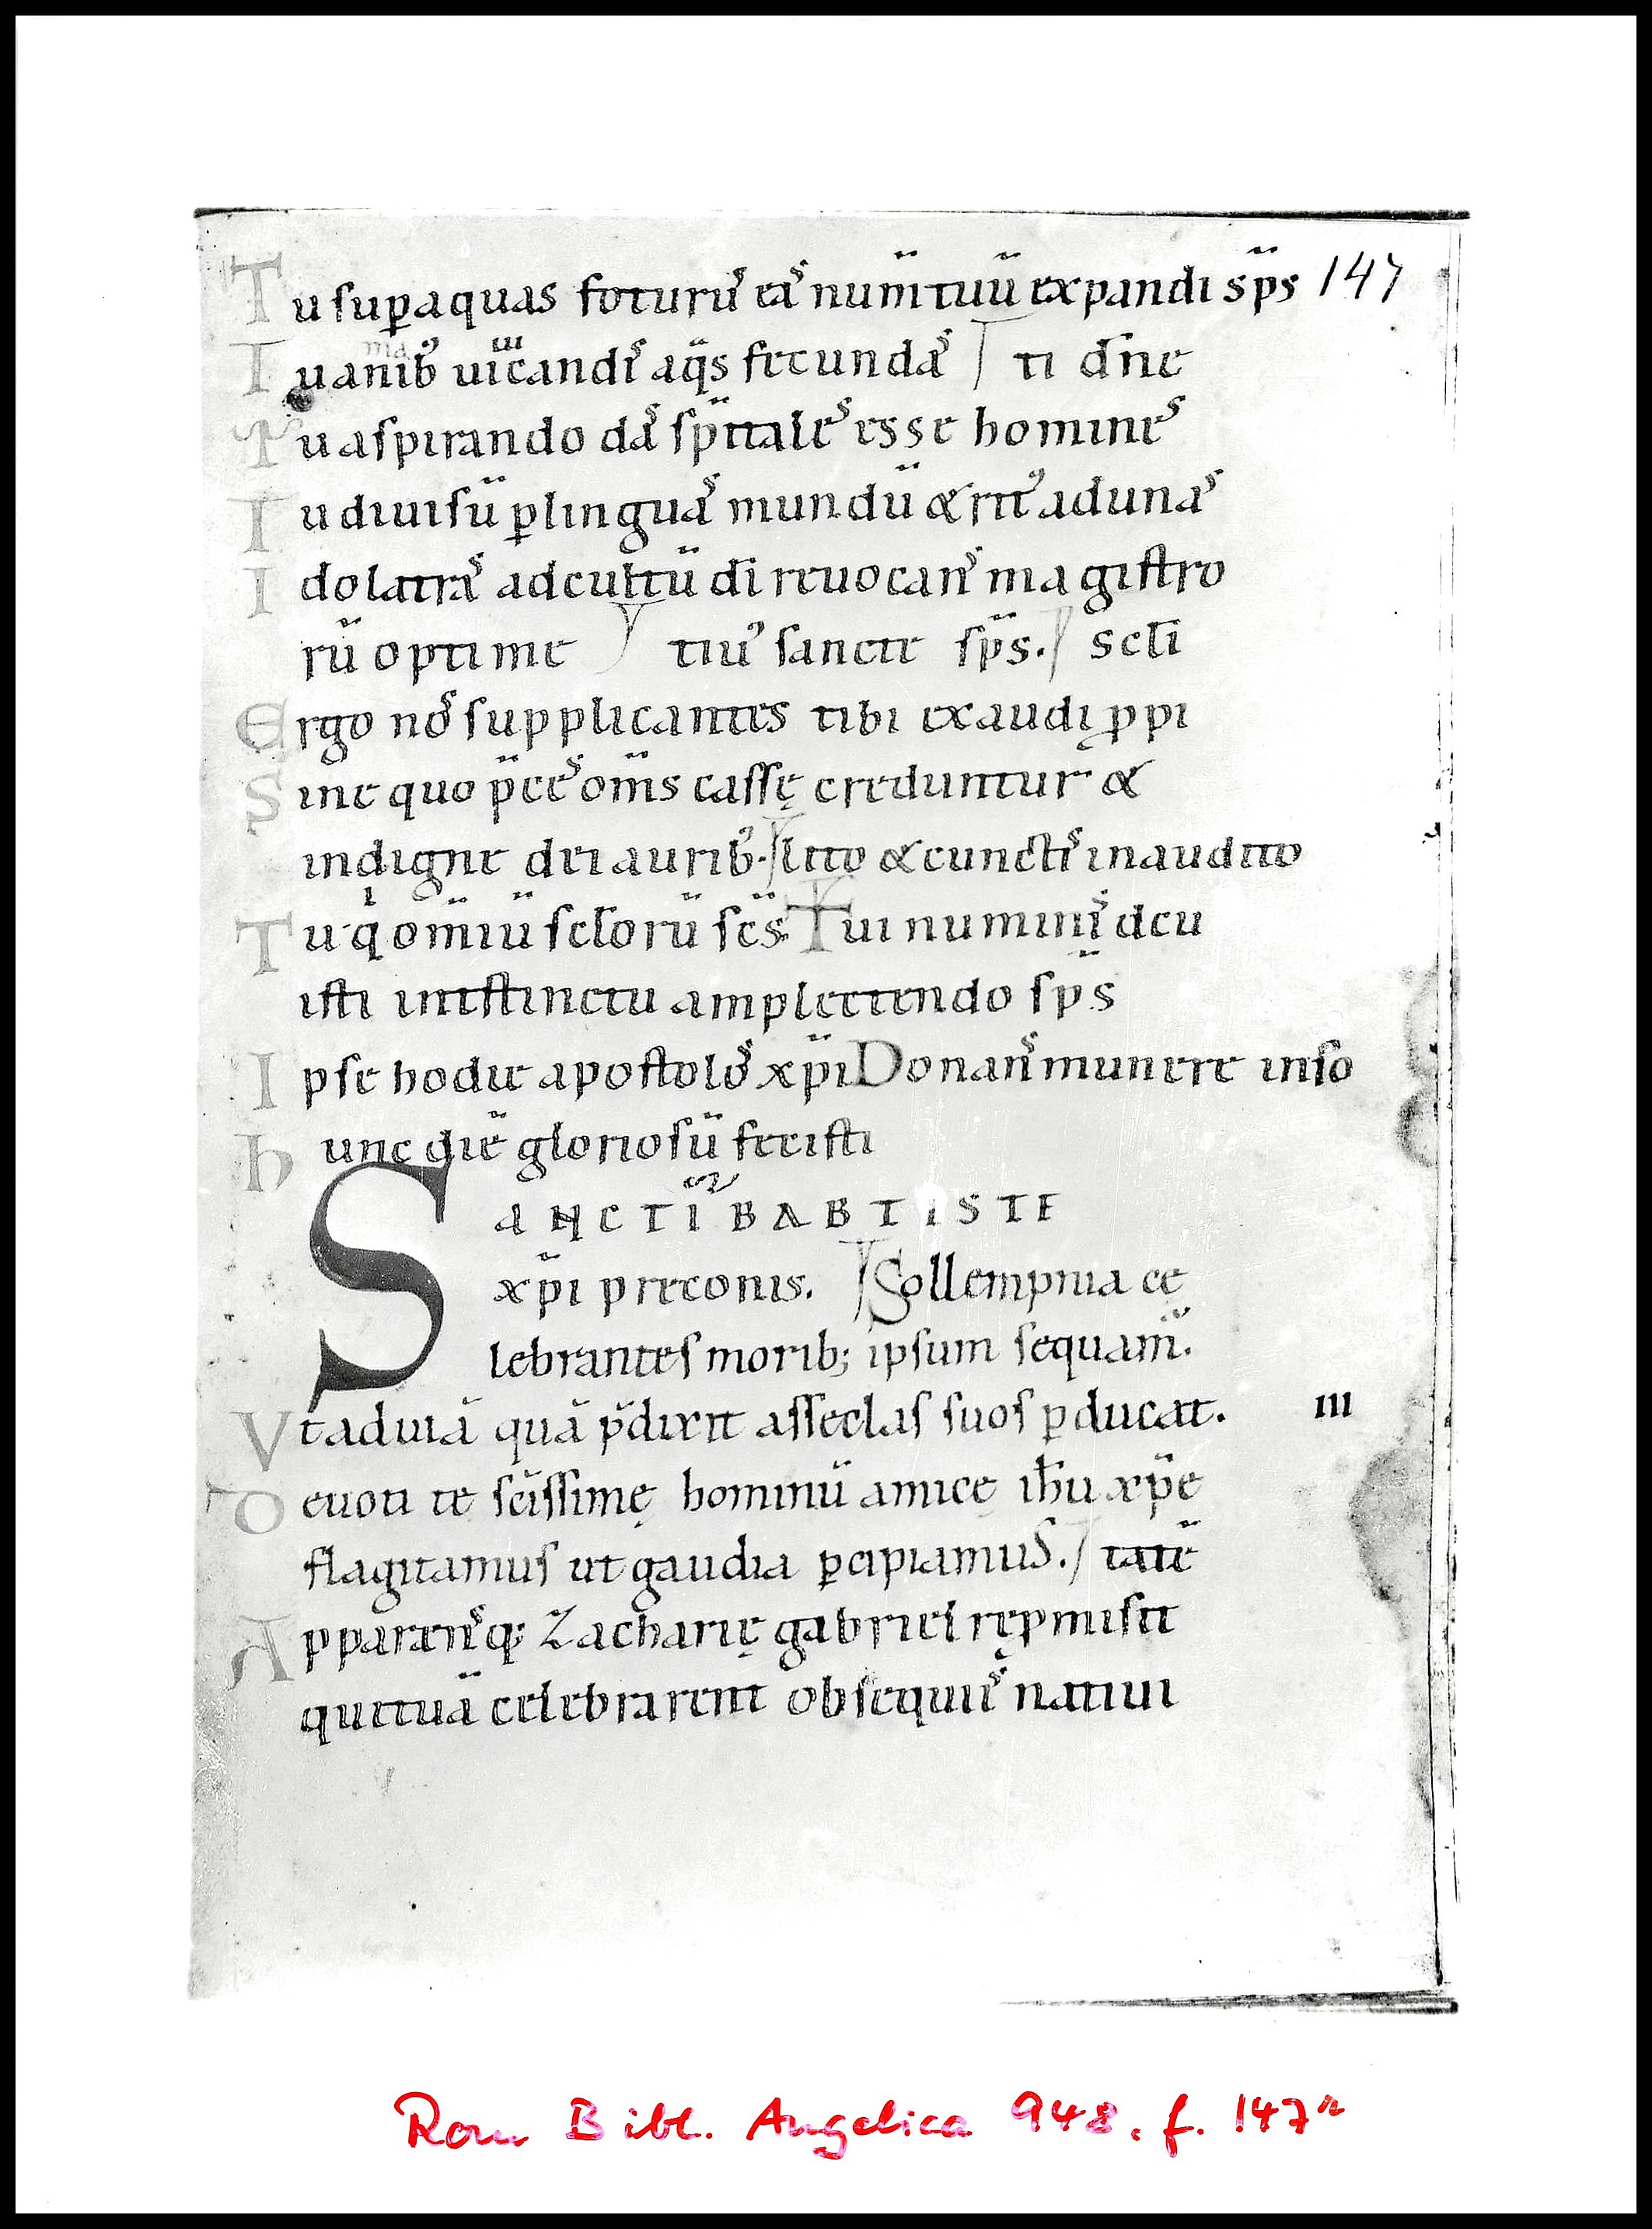 Tu sup̱ aquas foturuˢ eaˢ num̄ tuū expandi sp̄s 147
Tu animabꝰ uiuificandiˢ aq̄s fecundaˢ / ti dn̄e
Tu aspirando daˢ sp̄italeˢ esse homineˢ
Tu diuisū ꝑ linguaˢ mundū & ritꝰ adunaˢ
Idolatraˢ ad cultū dī reuocanˢ magistro
rū optime / tiuꝰ sancte sp̄s. / sctī
Ergo noˢ supplicantes tibi exaudi ꝓpi
Sine quo p̄ceˢ om̄s cassę creduntur &
indigne dei auribꝰ. / lito & cunctiˢ inaudito
Tu qͥ om̄iū sctōrū sc̄s Tui numiniˢ dcu
isti instinctu amplectendo sp̄s
Ipse hodie apostoloˢ xp̄i Donanˢ munere inso
hunc diē gloriosū fecisti
SANCTI BABTISTE
xp̄i preconis. / Sollempnia cę
lebrantes morib; ipsum sequam̄.
Vt ad uiā quā p̄dixit asseclas suos ꝑducat. III
Deuoti te sc̄issimę hominū amicę ih̄u xp̄e
flagitamus ut gaudia ꝑcipiamus. / tatē
Apparenˢq; Zacharię gabriel rępmisit
qui tuā celebrarent obsequiiˢ natiui
Rom Bibl. Angelica 948. f. 147ʳ